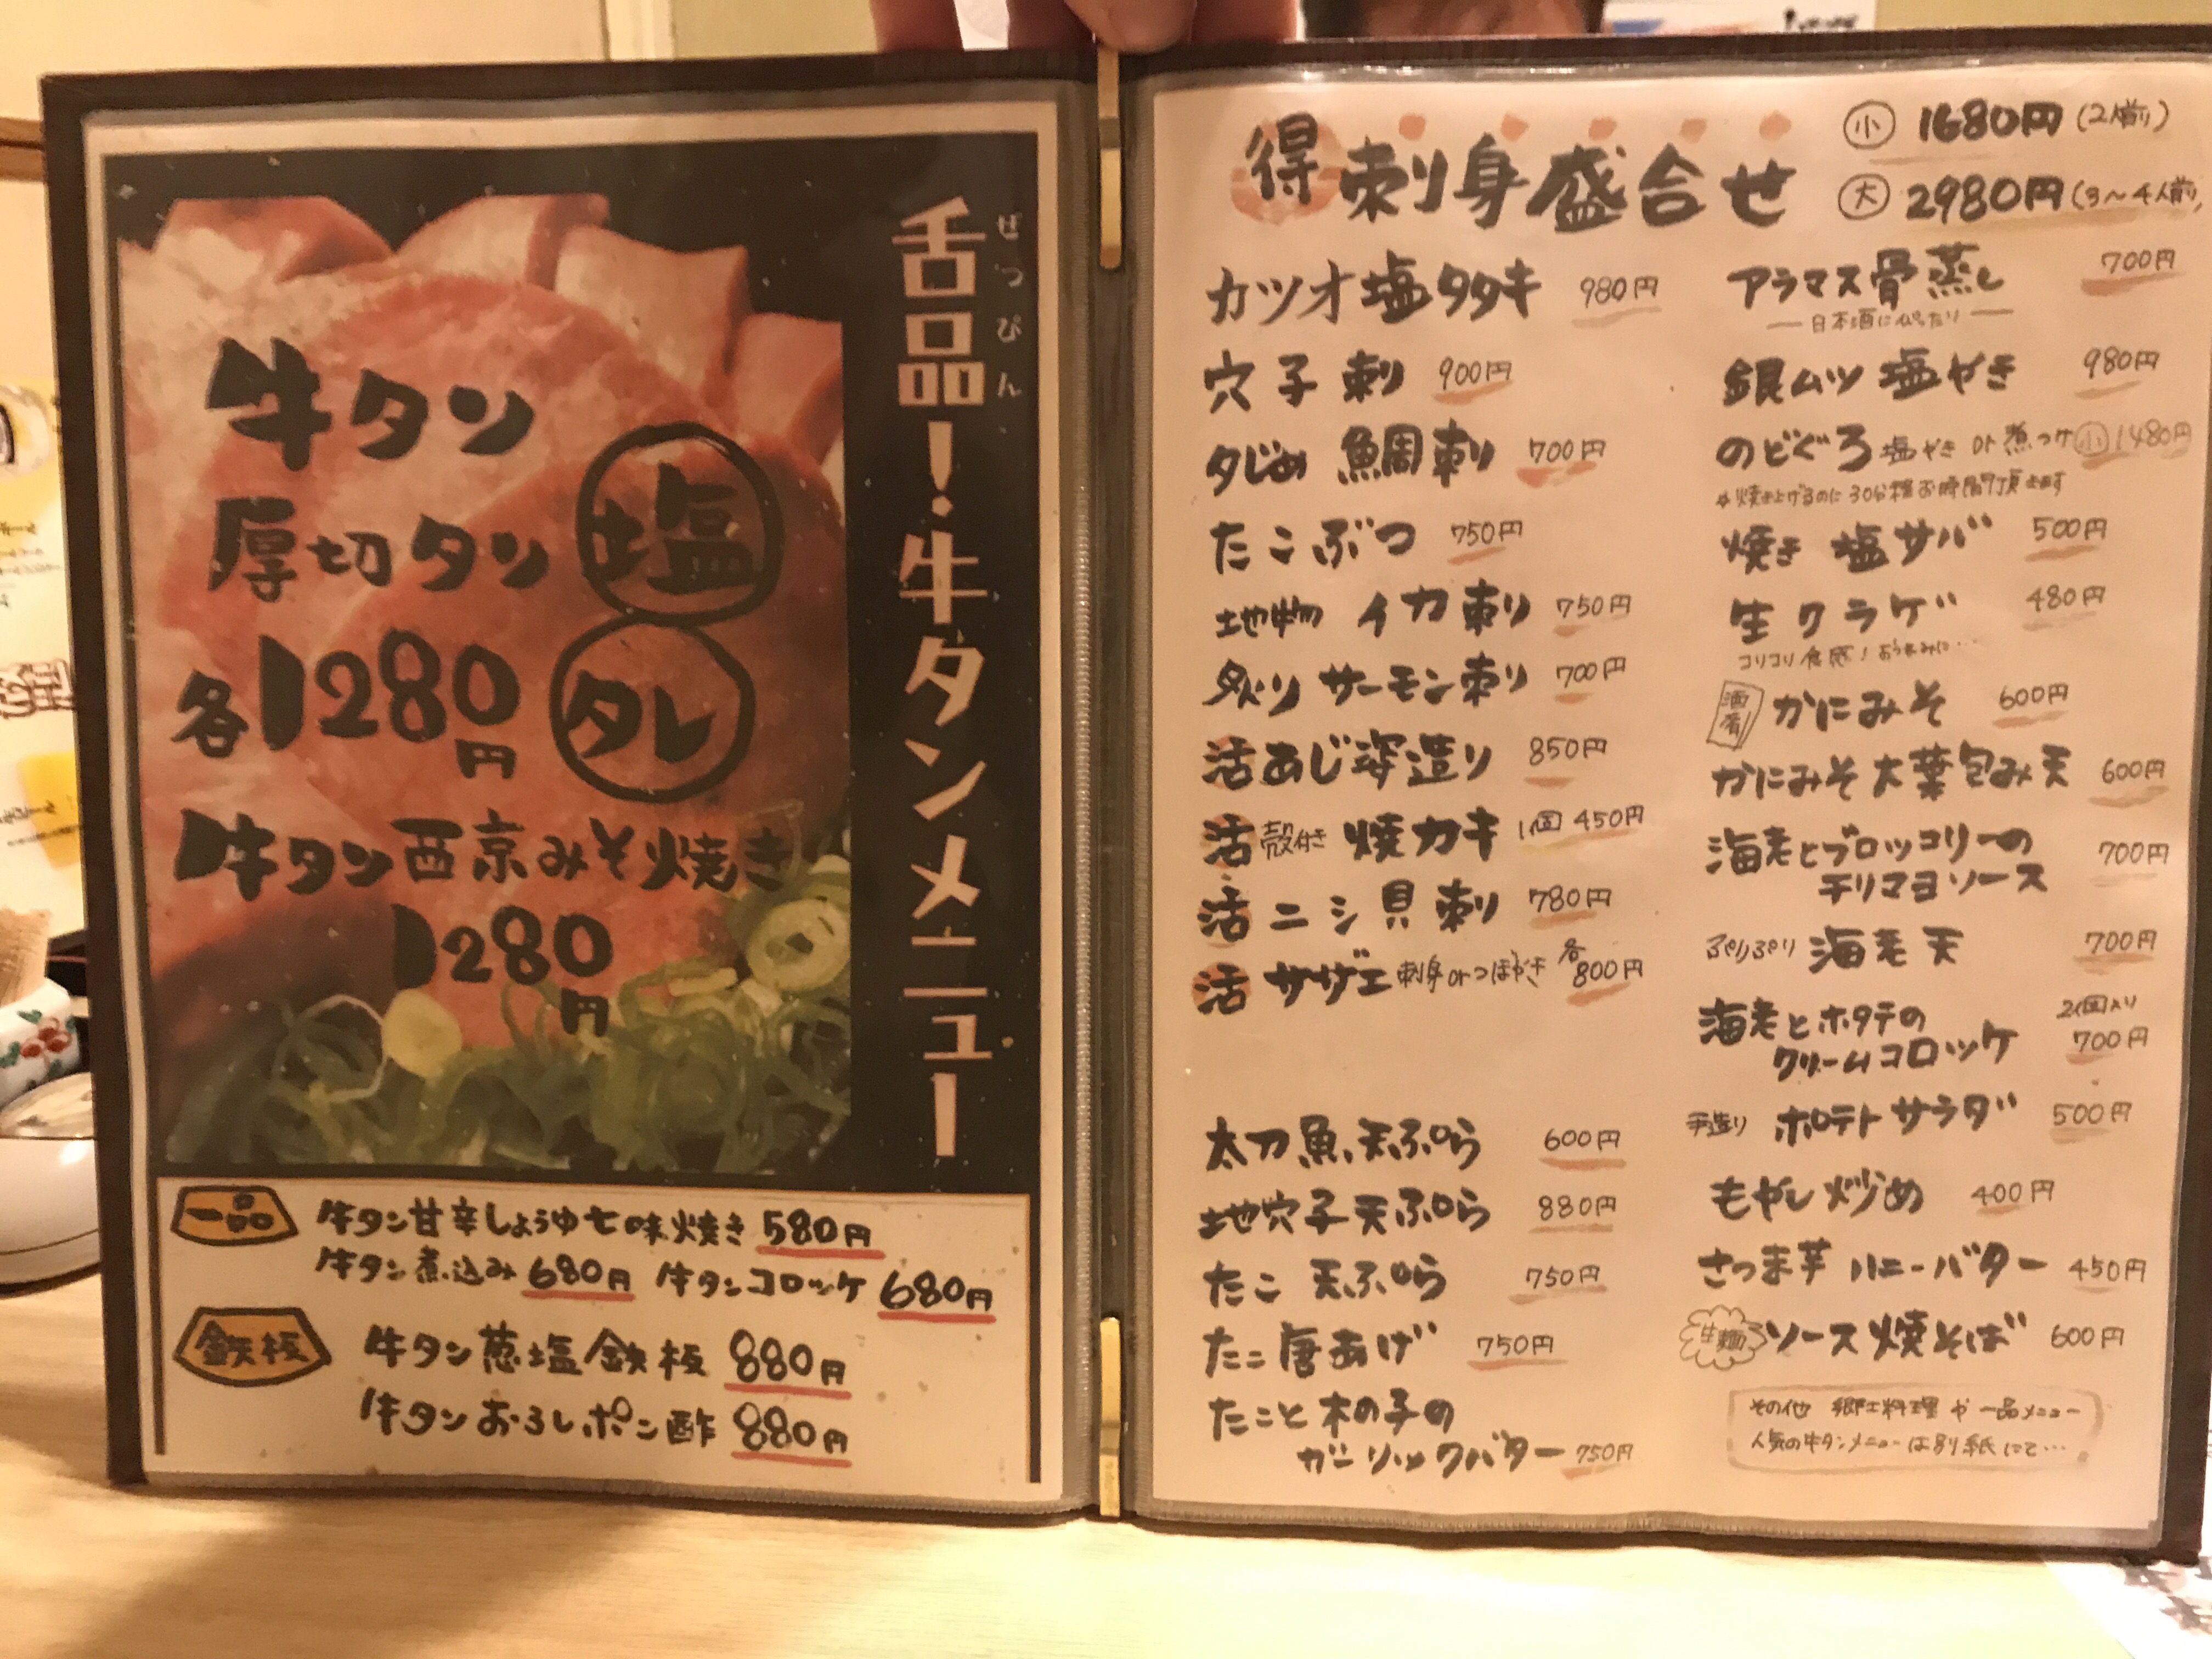 舌品!牛タンメニュー
ぜつぴん
牛タン
厚切タン 塩
各1280円 タレ
牛タン西京みそ焼き
1280円
一品 牛タン甘辛しょうゆ七味焼き 580円
牛タン煮込み 680円 牛タンコロッケ 680円
鉄板 牛タン葱塩鉄板 880円
牛タンおろしポン酢 880円
得 刺身盛合せ
小 1680円(2人前)
大 2980円(3〜4人前)
カツオ塩タタキ 980円
穴子刺 900円
タじめ 鯛刺 700円
たこぶつ 750円
地物 イカ刺り 750円
炙り サーモン刺り 700円
活あじ姿造り 850円
活 殻付き 焼カキ 1個 450円
活 ニシ貝刺り 780円
活 サザエ 刺身 or つぼやき 各800円
太刀魚天ぷら 600円
地穴子天ぷら 880円
たこ 天ぷら 750円
たこ唐あげ 750円
たこと木の子の
ガーリックバター 750円
アラマス骨蒸し 700円
日本酒にぴったり
銀ムツ 塩やき 980円
のどぐろ 塩やき or 煮つけ 小 1480円
☆焼き上げるのに30分程お時間頂きます
焼き 塩サバ 500円
生クラゲ 480円
コリコリ食感!おつまみに…
酒肴 かにみそ 600円
かにみそ大葉包み天 600円
海老とブロッコリーの
チリマヨソース 700円
ぷりぷり 海老天 700円
海老とホタテの 2個入り
クリームコロッケ 700円
手造り ポテトサラダ 500円
もやし炒め 400円
さつま芋 ハニーバター 450円
生麺 ソース焼そば 600円
その他 郷土料理や一品メニュー
人気の牛タンメニューは別紙にて…